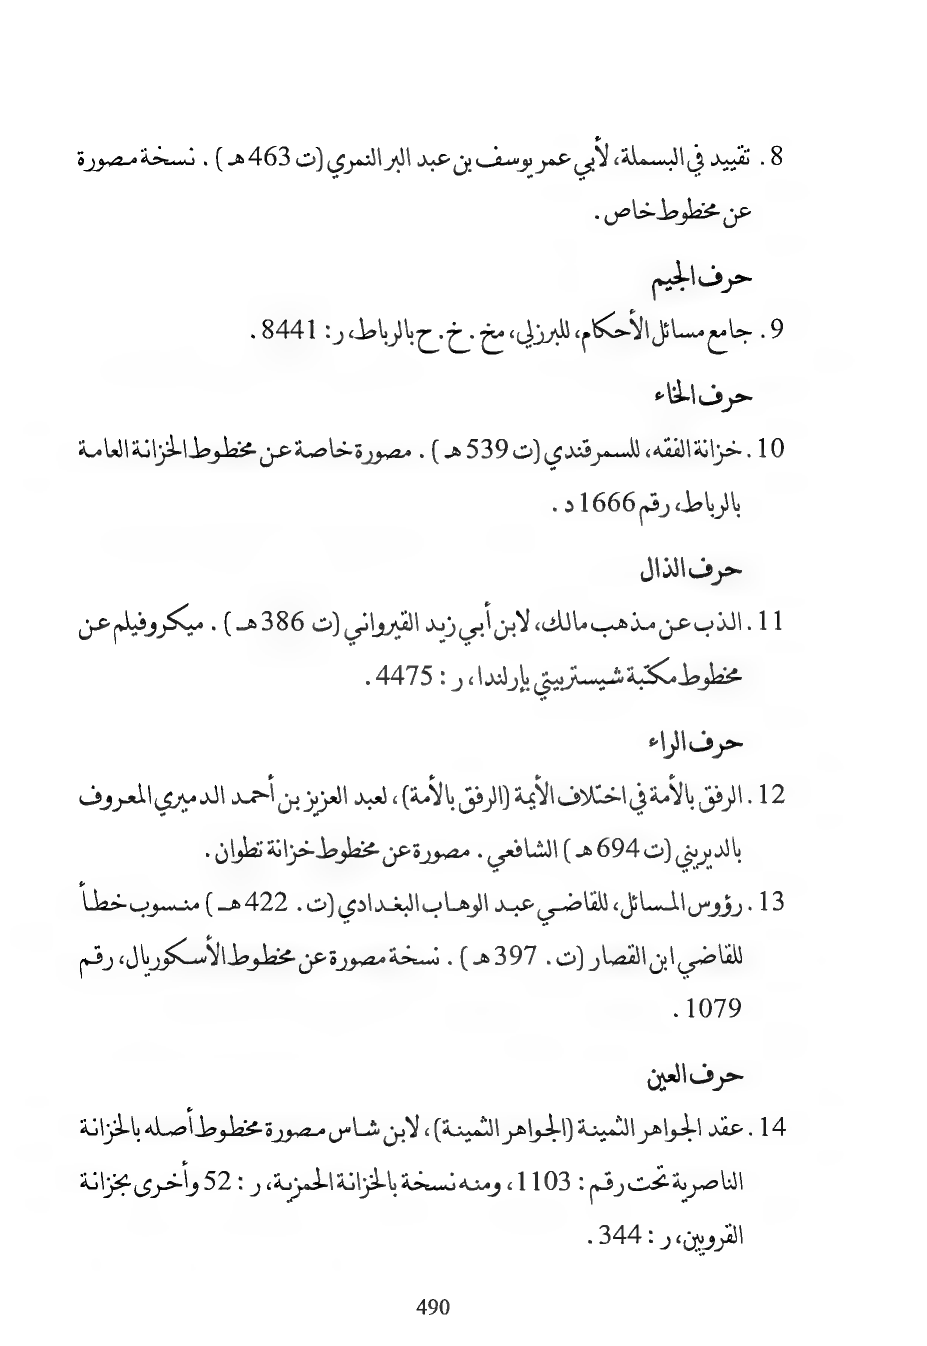 8. تقييد في البسملة، لأبي عمر يوسف بن عبد البر النمري (ت 463 هـ). نسخة مصورة
عن مخطوط خاص.
حرف الجيم
9. جامع مسائل الأحكام، للبرزلي، مخ. خ. ح بالرباط، ر: 8441.
حرف الخاء
10. خزانة الفقه، للسمرقندي (ت 539 هـ). مصورة خاصة عن مخطوط الخزانة العامة
بالرباط، رقم 1666 د.
حرف الذال
11. الذب عن مذهب مالك، لابن أبي زيد القيرواني (ت 386 هـ). ميكروفيلم عن
مخطوط مكتبة شيستربيتي بإرلندا، ر: 4475.
حرف الراء
12. الرفق بالأمة في اختلاف الأيمة (الرفق بالأمة)، لعبد العزيز بن أحمد الدميري المعروف
بالديريني (ت 694 هـ) الشافعي. مصورة عن مخطوط خزانة تطوان.
13. رؤوس المسائل، للقاضي عبد الوهاب البغدادي (ت. 422 هـ) منسوب خطأ
للقاضي ابن القصار (ت. 397 هـ). نسخة مصورة عن مخطوط الأسكوريال، رقم
1079.
حرف العين
14. عقد الجواهر الثمينة (الجواهر الثمينة)، لابن شاس مصورة مخطوط أصله بالخزانة
الناصرية تحت رقم: 1103، ومنه نسخة بالخزانة الحمزية، ر: 52 وأخرى بخزانة
القرويين، ر: 344.
490